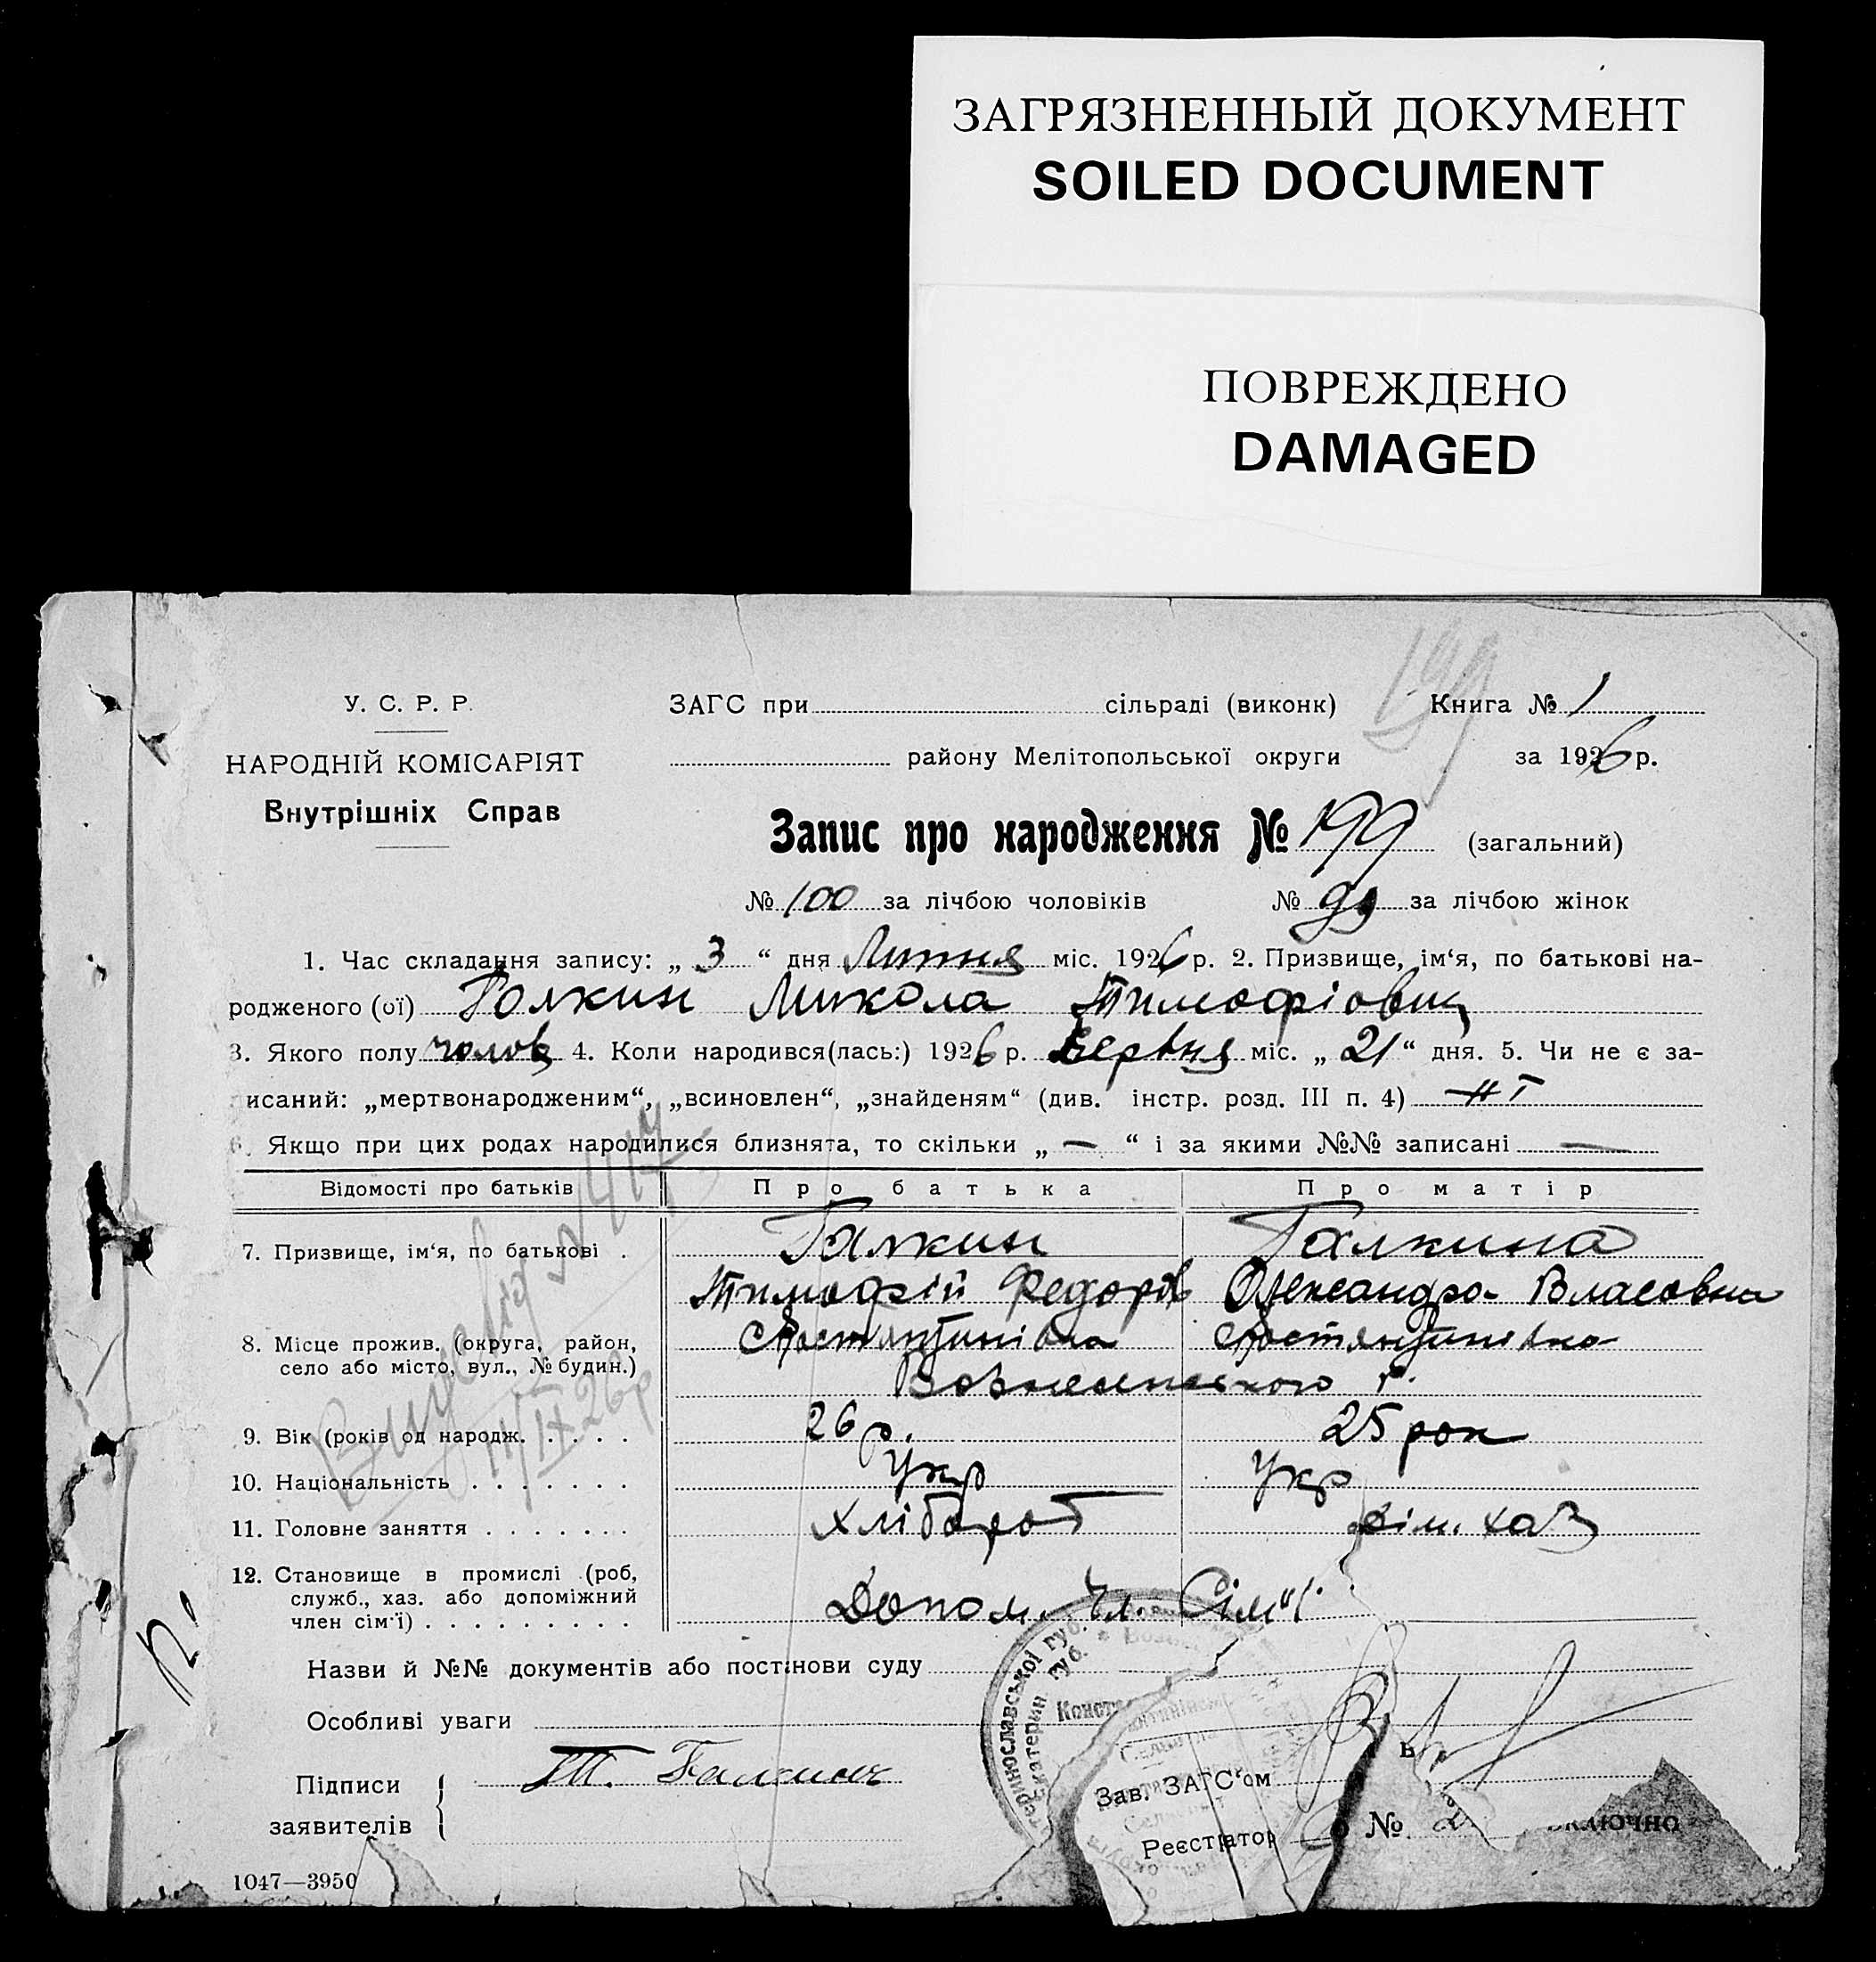 ЗАГРЯЗНЕННЫЙ ДОКУМЕНТ
SOILED DOCUMENT
ПОВРЕЖДЕНО
DAMAGED
199
У. С. Р. Р.
НАРОДНІЙ КОМІСАРІЯТ
Внутрішніх Справ
ЗАГС при сільраді (виконк) Книга № 1
району Мелітопольської округи за 1926 р.
Запис про народження № 199 (загальний)
№ 100 за лічбою чоловіків № 99 за лічбою жінок
1. Час складання запису: „ 3 “ дня Липня міс. 1926 р. 2. Призвище, ім‘я, по батькові на-
родженого (ої) Галкин Микола Тимофіович
3. Якого полу чолов 4. Коли народився(лась:) 1926 р. Червня міс. „ 21 “ дня. 5. Чи не є за-
исаний: „мертвонародженим“, „всиновлен“, „знайденям“ (див. інстр. розд. III п. 4) — ні
6. Якщо при цих родах народилися близнята, то скільки „ — “ і за якими №№ записані —
Відомості про батьків Про батька Про матір
7. Призвище, ім‘я, по батькові . Галкин Галкина
Тимофій Федоров Олександра Власовна
8. Місце прожив. (округа, район, село або місто, вул., № будин.) Костянтинівка Костянтинівка
Вознесенського р.
9. Вік (років од народж. . . . . 26 р. 25 рок
10. Національність . . . . . . . Укр Укр
11. Головне заняття . . . . . . . хлібороб дім. хаз
12. Становище в промислі (роб, служб., хаз. або допоміжний член сім‘ї) . . . . . . . . . Допом. чл. Сім‘ї
Назви й №№ документів або постанови суду
Особливі уваги
Підписи
заявителів
Т. Галкин
Зав. ЗАГС‘ом
Реєстратор
№
включно
1047—3950